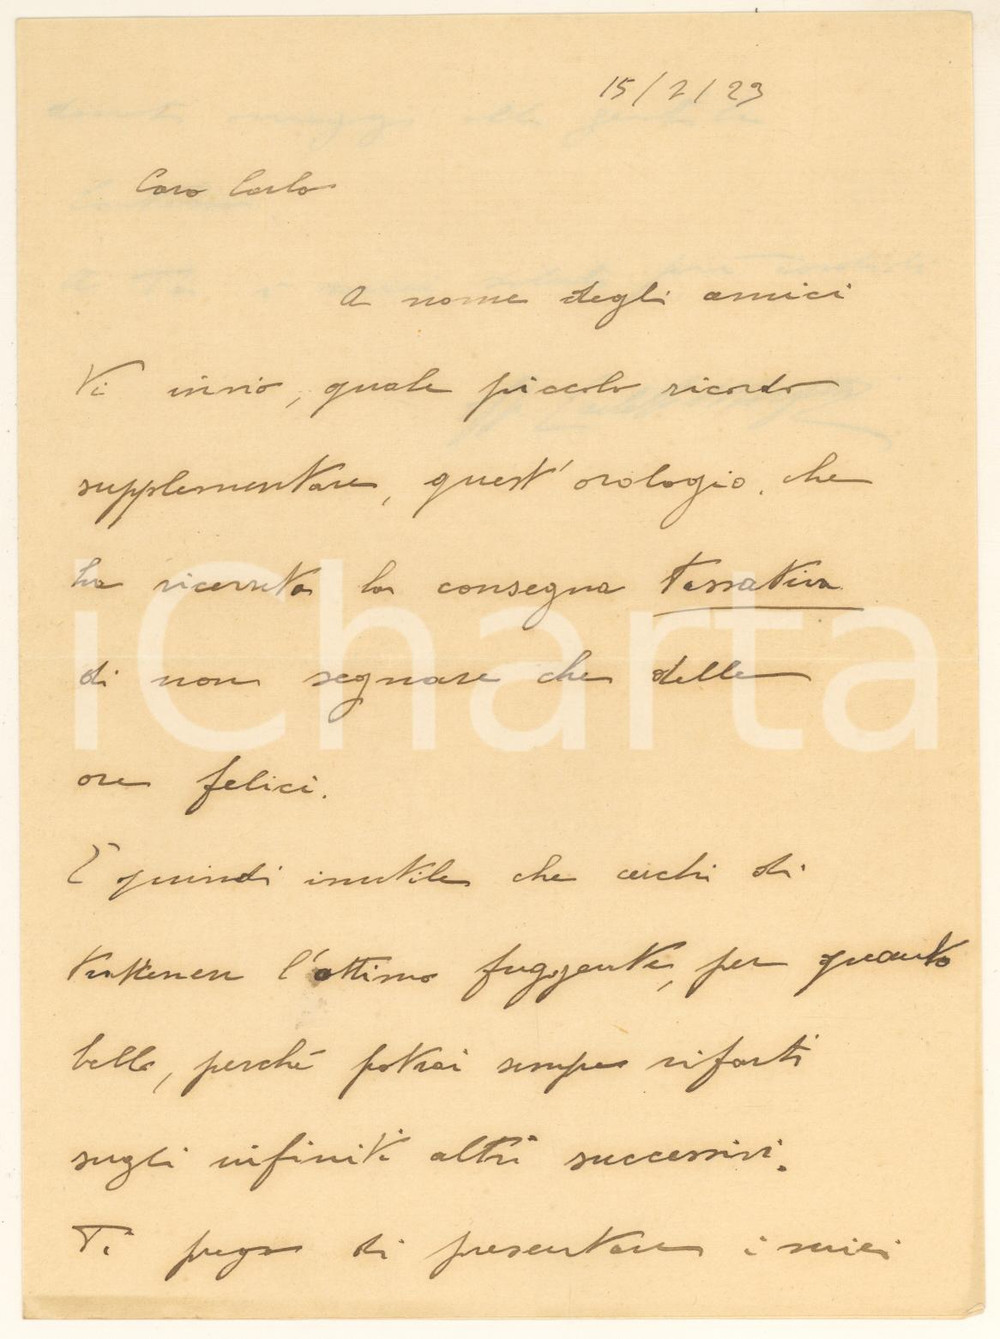 15/2/23
Caro Carlo
A nome degli amici
Ti invio, quale piccolo ricordo
supplementare, quest'orologio, che
ha ricevuto la consegna tassativa
di non segnare che delle
ore felici.
E quindi inutile che cerchi di
trattenere l'attimo fuggente, per quanto
bello, perché potrai sempre rifarti
sugli infiniti altri successivi.
Ti prego di presentare i miei
iCharta